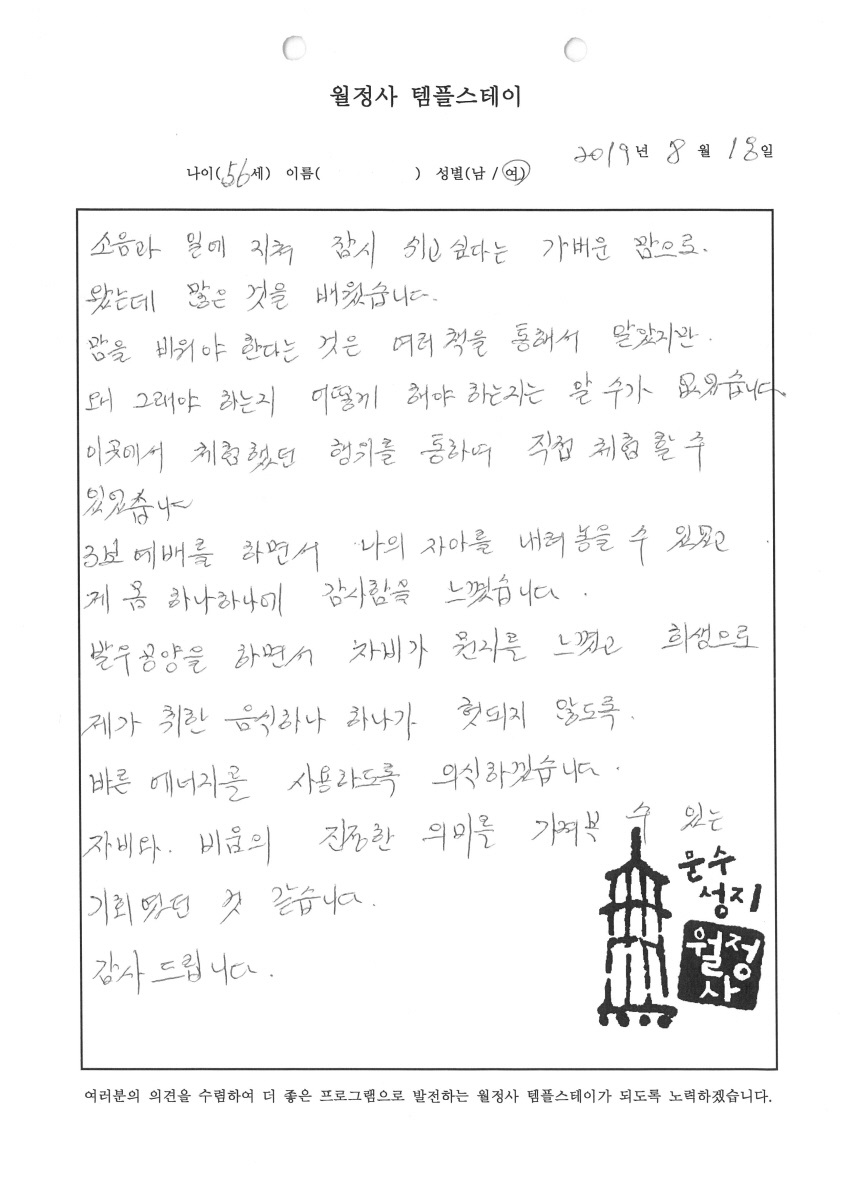 월정사 템플스테이
2019년 8월 18일
나이(56세) 이름( ) 성별(남 / 여)
소음과 일에 지쳐 잠시 쉬고 싶다는 가벼운 맘으로.
왔는데 많은 것을 배웠습니다.
맘을 비워야 한다는 것은 여러 책을 통해서 알았지만.
왜 그래야 하는지 어떻게 해야 하는지는 알 수가 없었습니다.
이곳에서 체험했던 행위를 통하여 직접 체험 할 수
있었습니다
3보 예배를 하면서 나의 자아를 내려 놓을 수 있었고
제 몸 하나하나에 감사함을 느꼈습니다.
발우공양을 하면서 자비가 뭔지를 느꼈고 희생으로
제가 취한 음식하나 하나가 헛되지 않도록.
바른 에너지로 사용하도록 의식하겠습니다.
자비와. 비움의 진정한 의미를 가져볼 수 있는
기회였던 것 같습니다.
감사 드립니다.
문수
성지
월정
사
여러분의 의견을 수렴하여 더 좋은 프로그램으로 발전하는 월정사 템플스테이가 되도록 노력하겠습니다.